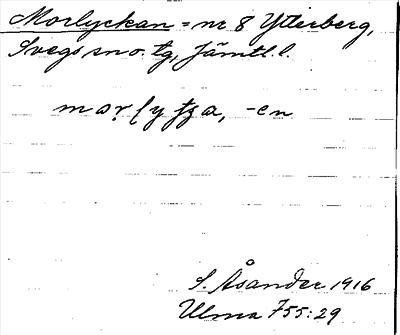 Morlyckan = nr 8 Ytterberg,
Svegs sn o. tg, Jämtl. l.
-en
S. Åsander 1916
Ulma 755:29